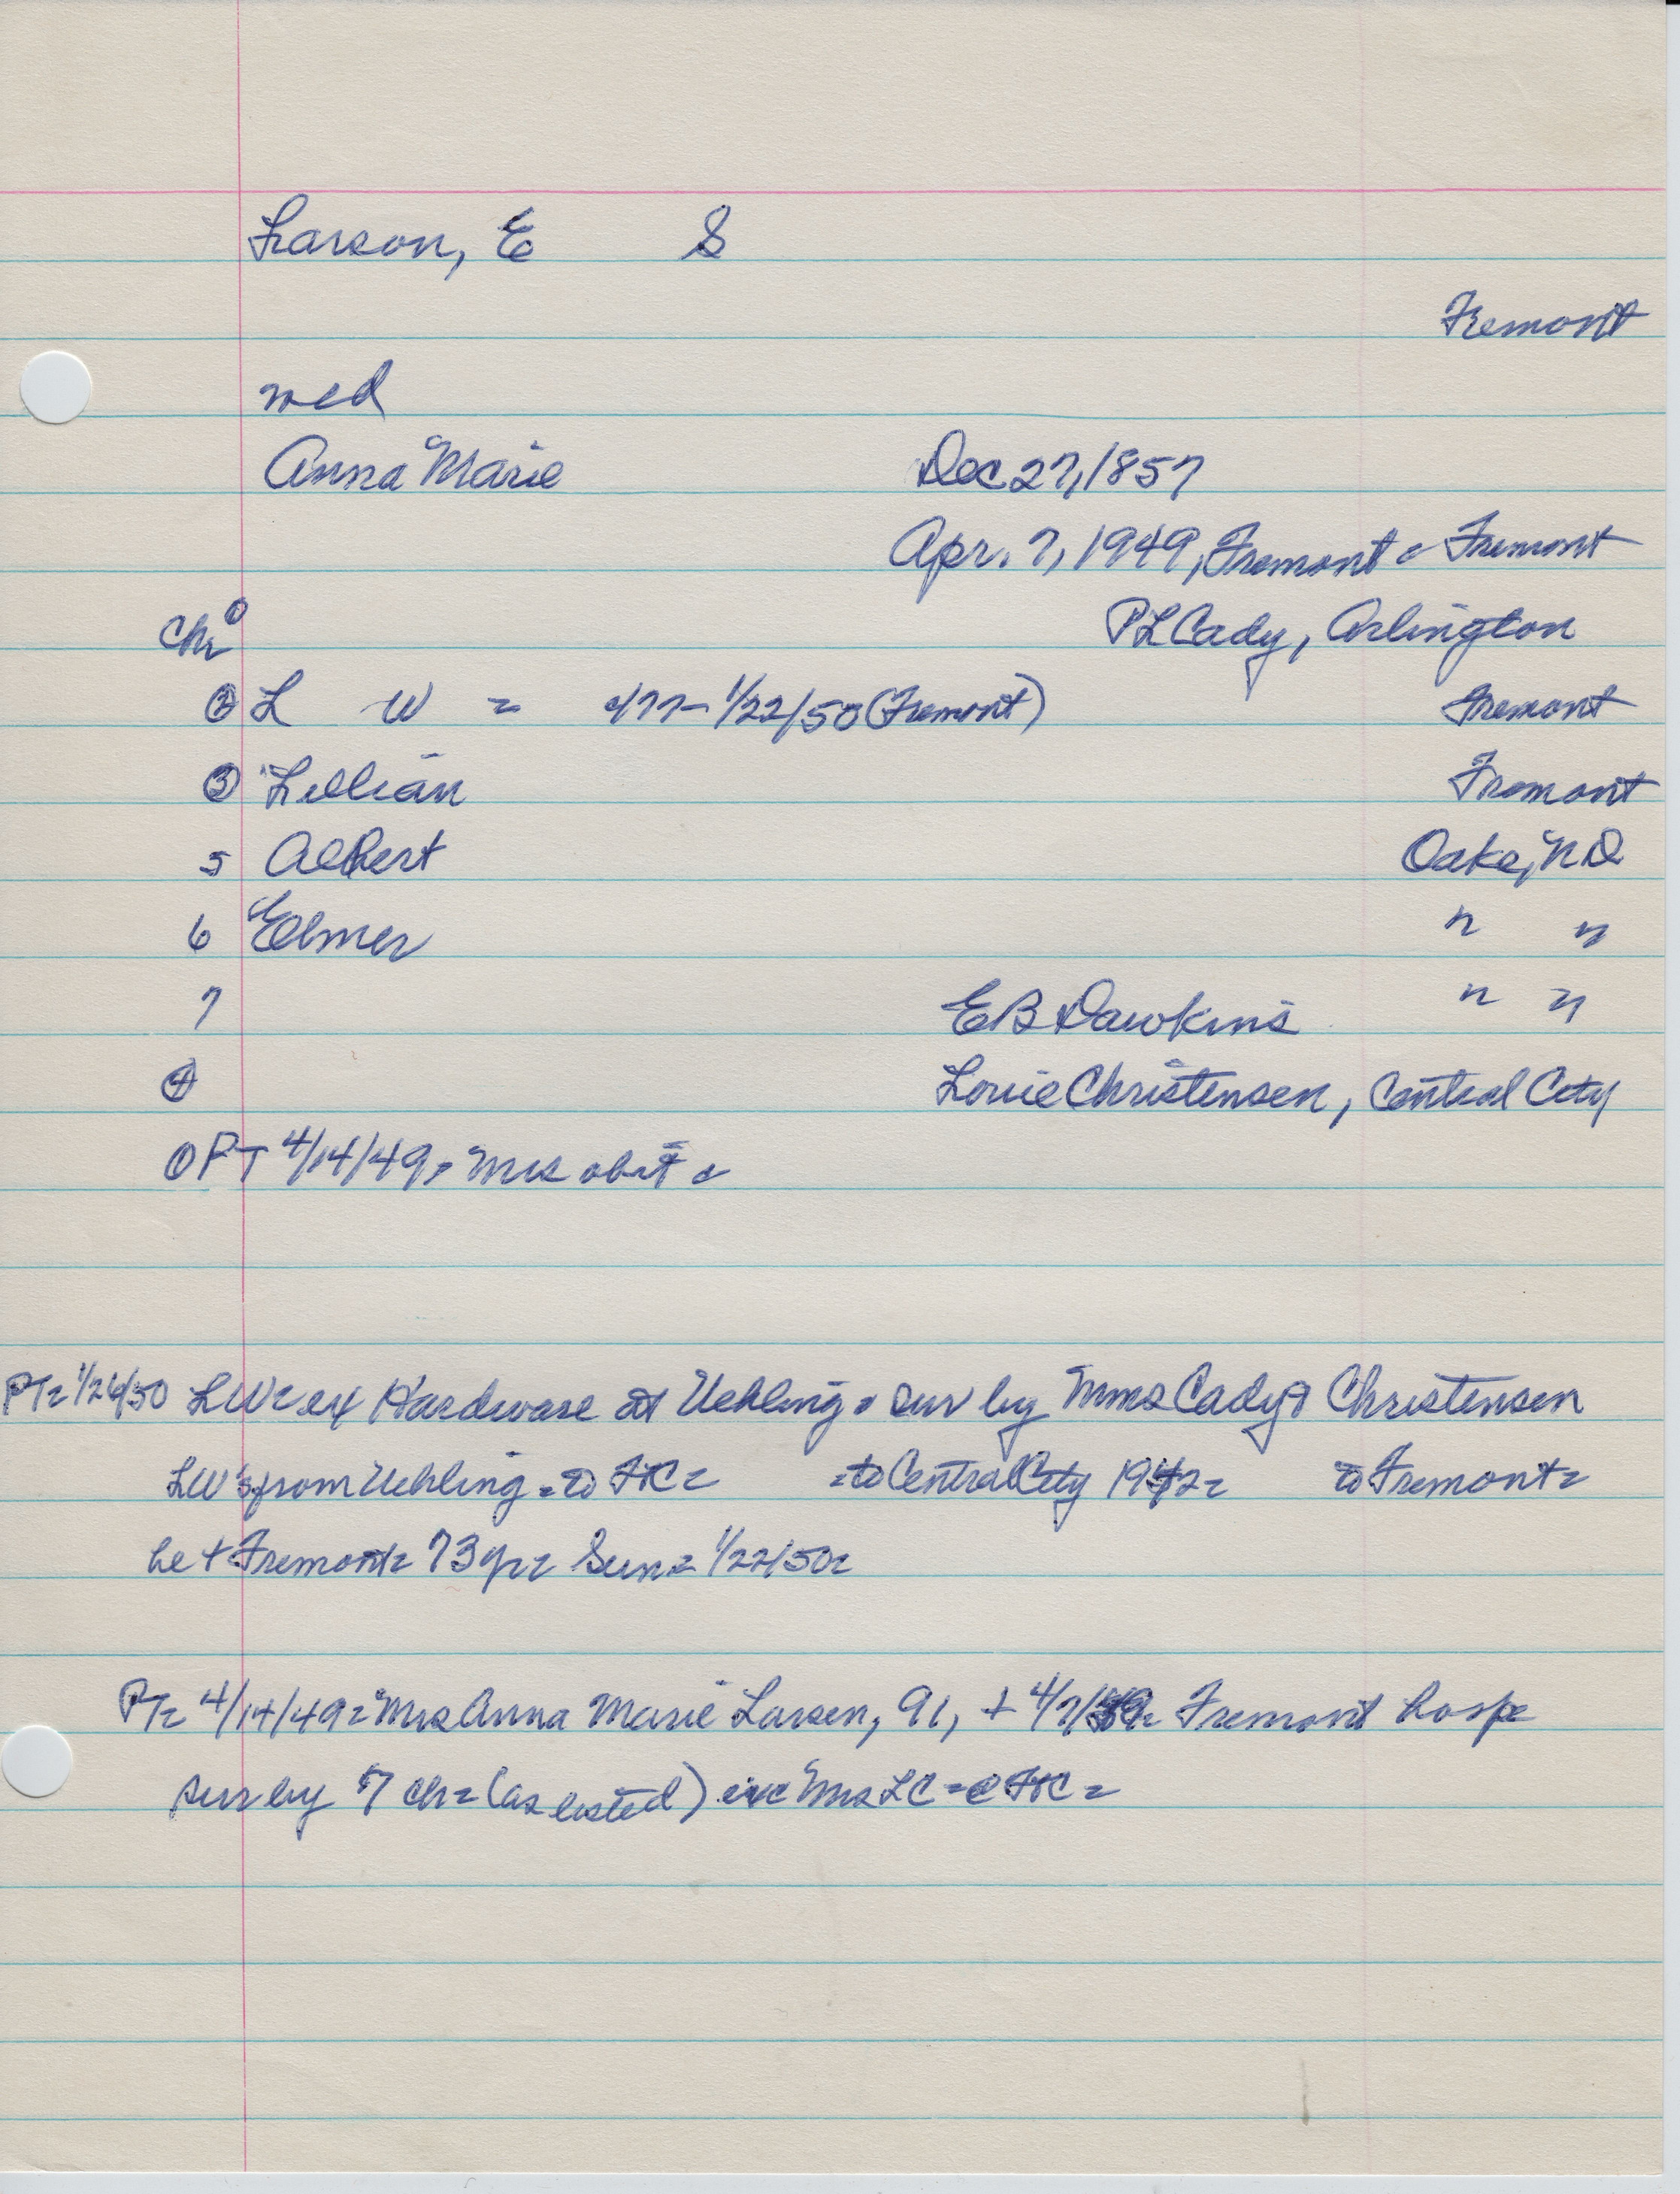 Larson, E S
Fremont
med
Anna Marie Dec 27, 1857
Apr. 7, 1949, Fremont c Fremont
Ch= ① P L Cady, Arlington
② L W = 1877- 1/22/50 (Fremont) Fremont
③ Lillian Fremont
5 Albert Oake, ND
6 Elmer " "
7 E B Dawkins " "
④ Louie Christensen, Central City
① PT 4/14/49, Mrs obit c
PT= 1/26/50 LW= ex Hardware at Uehling = sur by Mms Cady & Christensen
LW's from Uehling = to = to Central City 1942= to Fremont=
he + Fremont= 73 yr= Sun= 1/22/50=
PT= 4/14/49= Mrs Anna Marie Larsen, 91, + 4/7/49= Fremont hosp=
sur by 7 ch= (as listed) inc Mrs LC =